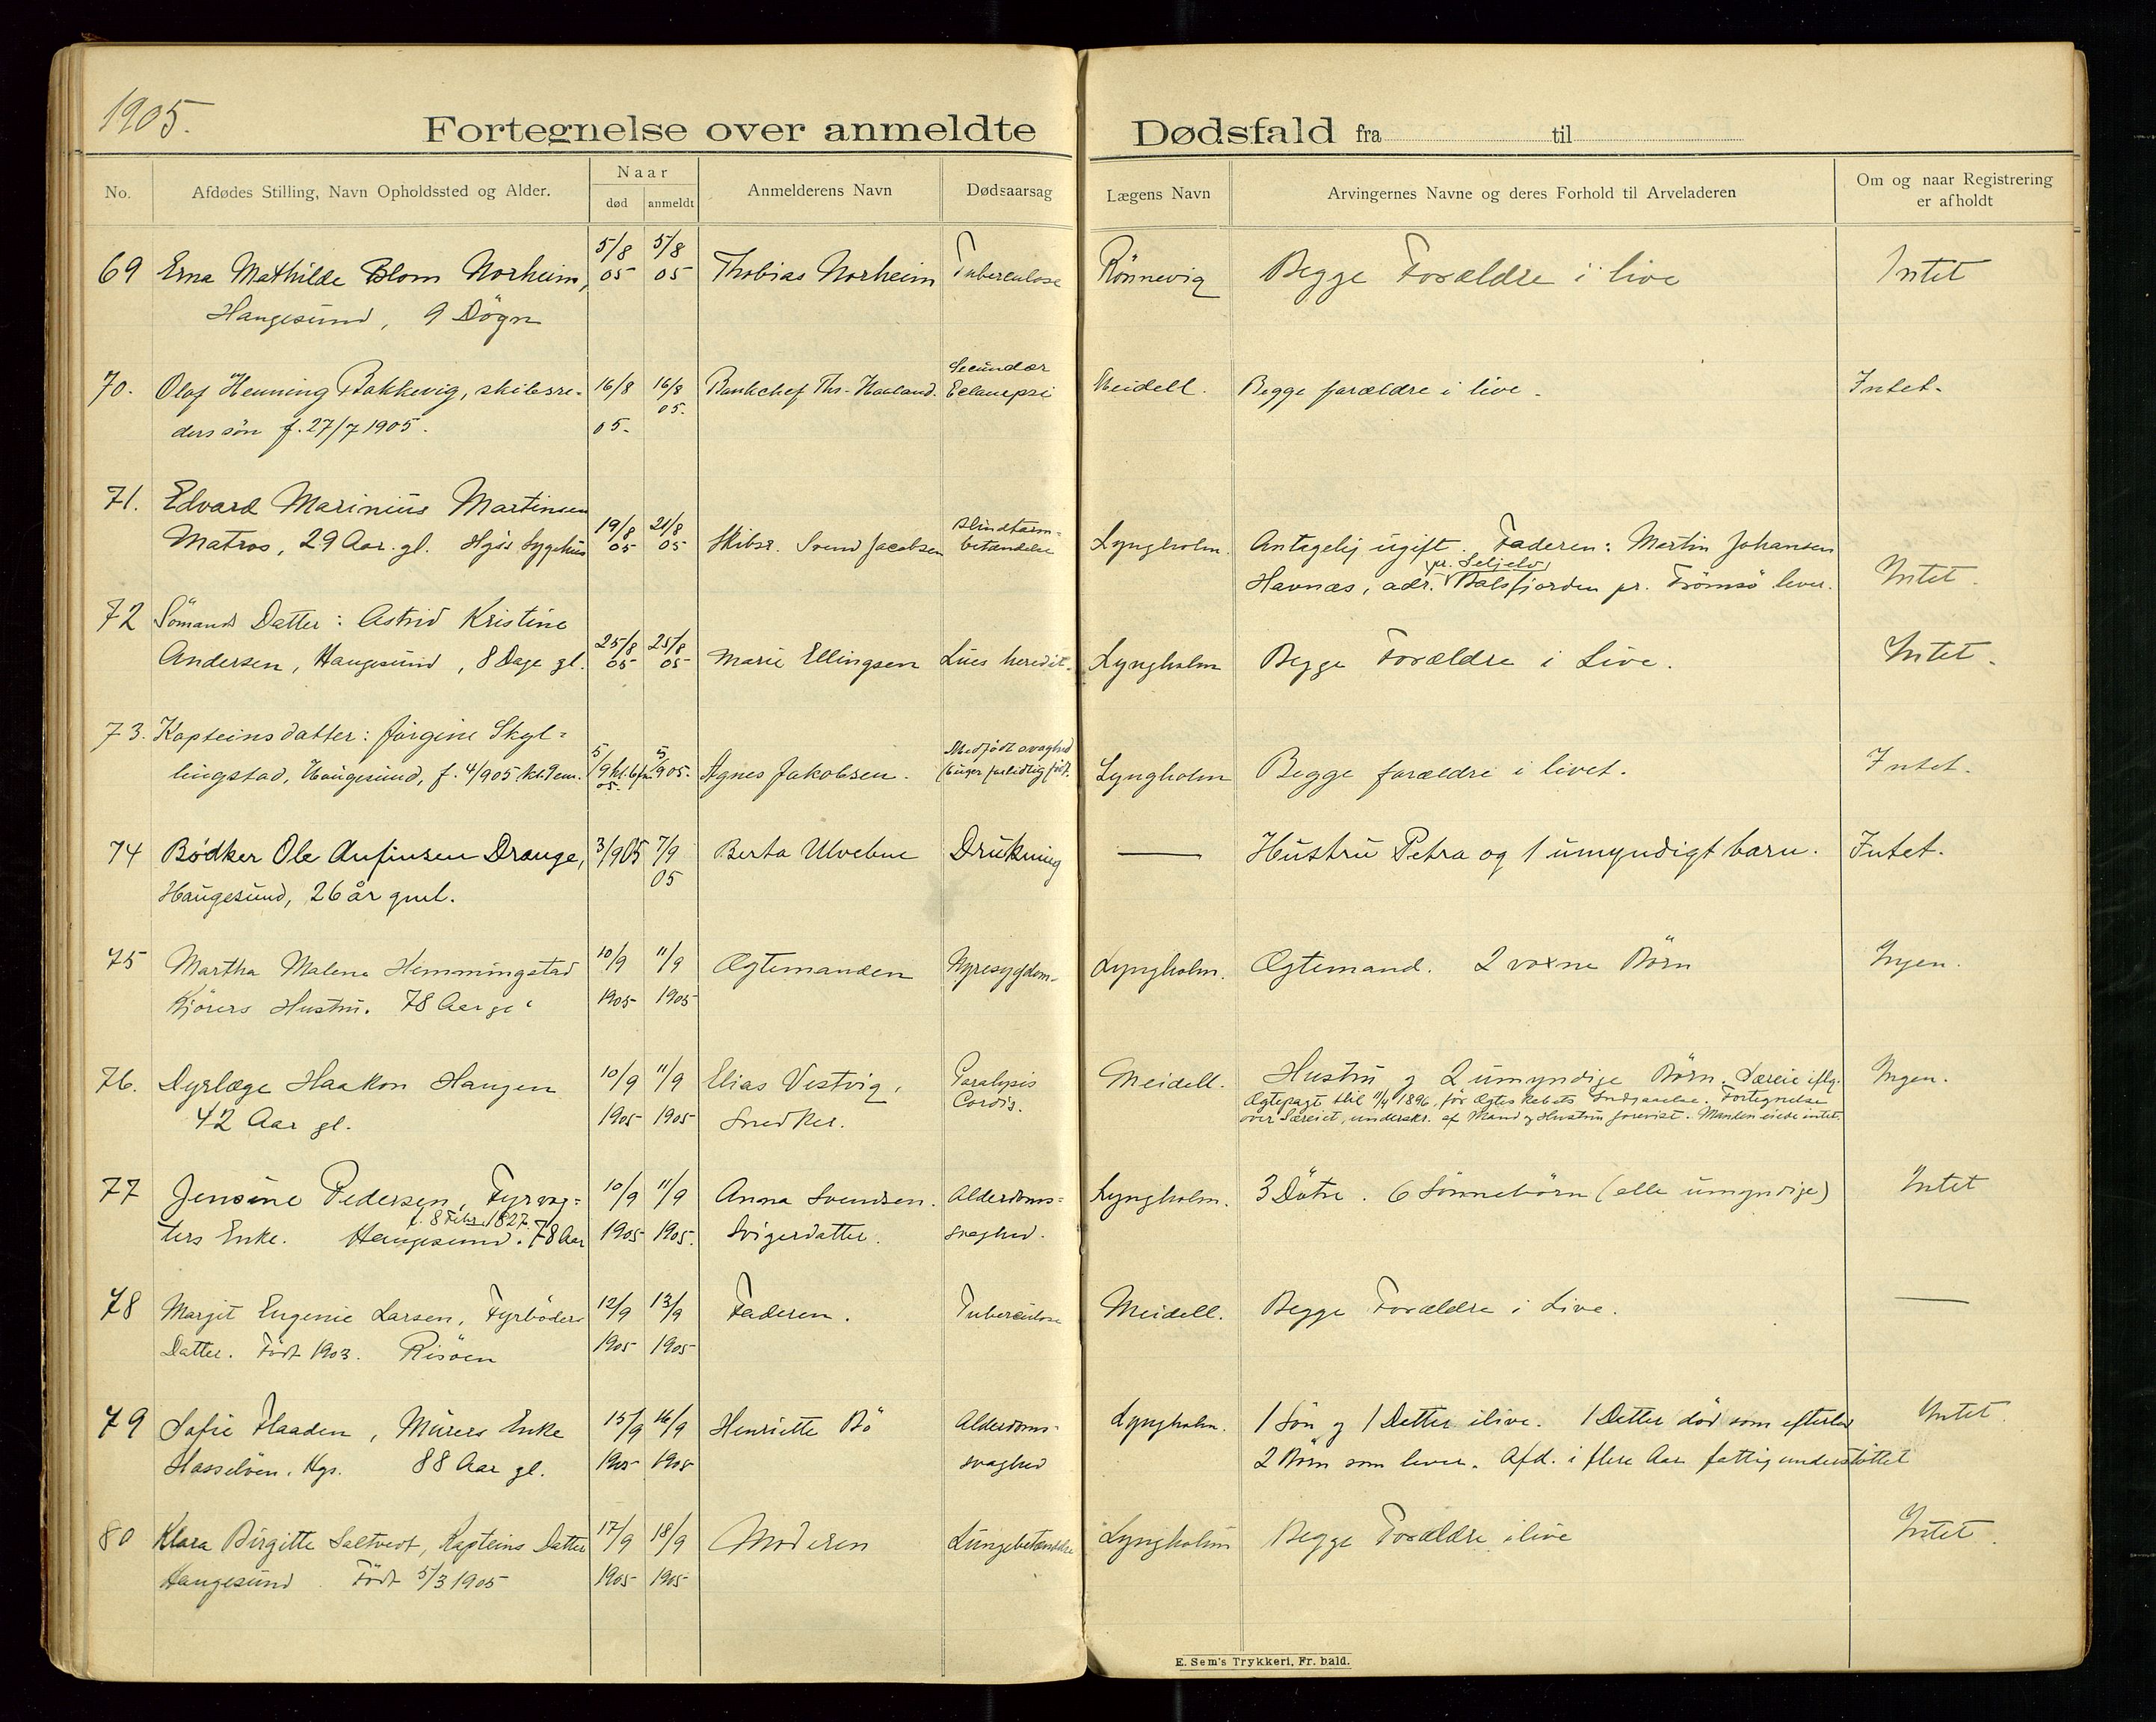 1905.
Fortegnelse over anmeldte Dødsfald fra til
No.
Afdødes Stilling, Navn Opholdssted og Alder.
Naar
død
anmeldt
Anmelderens Navn
Dødsaarsag
Lægens Navn
Arvingernes Navne og deres Forhold til Arveladeren
Om og naar Registrering
er afholdt
69 Erna Mathilde Blom Norheim, 5/8 05 5/8 05 Thobias Norheim Tuberculose Rönnevig Begge Forældre i live Intet
Haugesund, 9 Dögn
70. Olaf Henning Bakkevig, skibsre- 16/8 16/8 Bankchef Ths. Haaland. Secundær Eclampsi Meidell. Begge forældre i live. Intet.
derssön f. 27/7 1905. 05. 05.
71. Edvard Marinius Martinsen
Matros, 29 Aar. gl. Hgss Sygehus 19/8 05 21/8 05 Skibsr. Svend Jacobsen Blindtarm-
betændelse Lyngholm. Antagelig ugift. Faderen: Martin Johansen
Havnæs, adr. pr. Seljelv Balsfjorden pr. Tromsö lever. Intet.
72 Sömands Datter: Astrid Kristine
Andersen, Haugesund, 8 Dage gl. 25/8 05 25/8 05 Marie Ellingsen Lues heredit. Lyngholm Begge Forældre i Live. Intet.
73. Kapteinsdatter: Jörgine Skyl-
lingstad, Haugesund, f. 4/905 kl. 9 em. 5/9 kl. 6 fm. 05. 5/905. Agnes Jakobsen. Medfödt svaghed Lyngholm Begge forældre i livet. Intet.
74 Bödker Ole Anfinsen Drange, 3/905 7/9 Berta Ulvebne Drukning — Hustru Petra og 1 umyndigt barn. Intet.
Haugesund, 26 år gml. 05
75 Martha Malene Hemmingstad 10/9 11/9 Ægtemanden Nyresygdom. Lyngholm. Ægtemand. 2 voxne Börn Ingen.
Kjörers Hustru. 78 Aar gl. 1905 1905
76. Dyrlæge Haakon Haugen 10/9 11/9 Elias Vestvig, Paralysis Meidell. Hustru og 2 umyndige Börn. Særeie iflg. Ingen.
42 Aar gl. 1905 1905 Snedker. Cordis. Ægtepagt 11/4 1896, för Ægteskabets Indgaaelse. Fortegnelse
over Særeiet, underskr. af Mand og Hustru forevist. Manden eiede intet.
77 Jensine Pedersen, Fyrvog- 10/9 11/9 Anna Svendsen. Alderdoms- Lyngholm. 3 Dötre. 6 Sönnebörn (alle umyndige) Intet
f. 8 Febr. 1827.
ters Enke. Haugesund. 78 Aar 1905 1905. Svigerdatter. svaghed.
78 Margit Eugenie Larsen, Fyrböders 12/9 13/9 Faderen. Tuberculose Meidell. Begge Forældre i Live. —
Datter. Född 1903. Risöen 1905 1905
79 Sofie Flaaden, Murers Enke 15/9 16/9 Henriette Bö Alderdoms- Lyngholm. 1 Sön og 1 Datter ilive. 1 Datter död som efterlod Intet.
Hasselöen. Hgs. 88 Aar gl. 1905 1905 svaghed 2 Börn som lever. Afd. i flere Aar fattigunderstöttet
80 Klara Birgitte Saltvedt, Kapteins Datter 17/9 18/9 Moderen Lungebetændelse Lyngholm Begge Forældre ilive Intet.
Haugesund Född 5/3 1905 1905 1905
E. Sem's Trykkeri, Fr. hald.